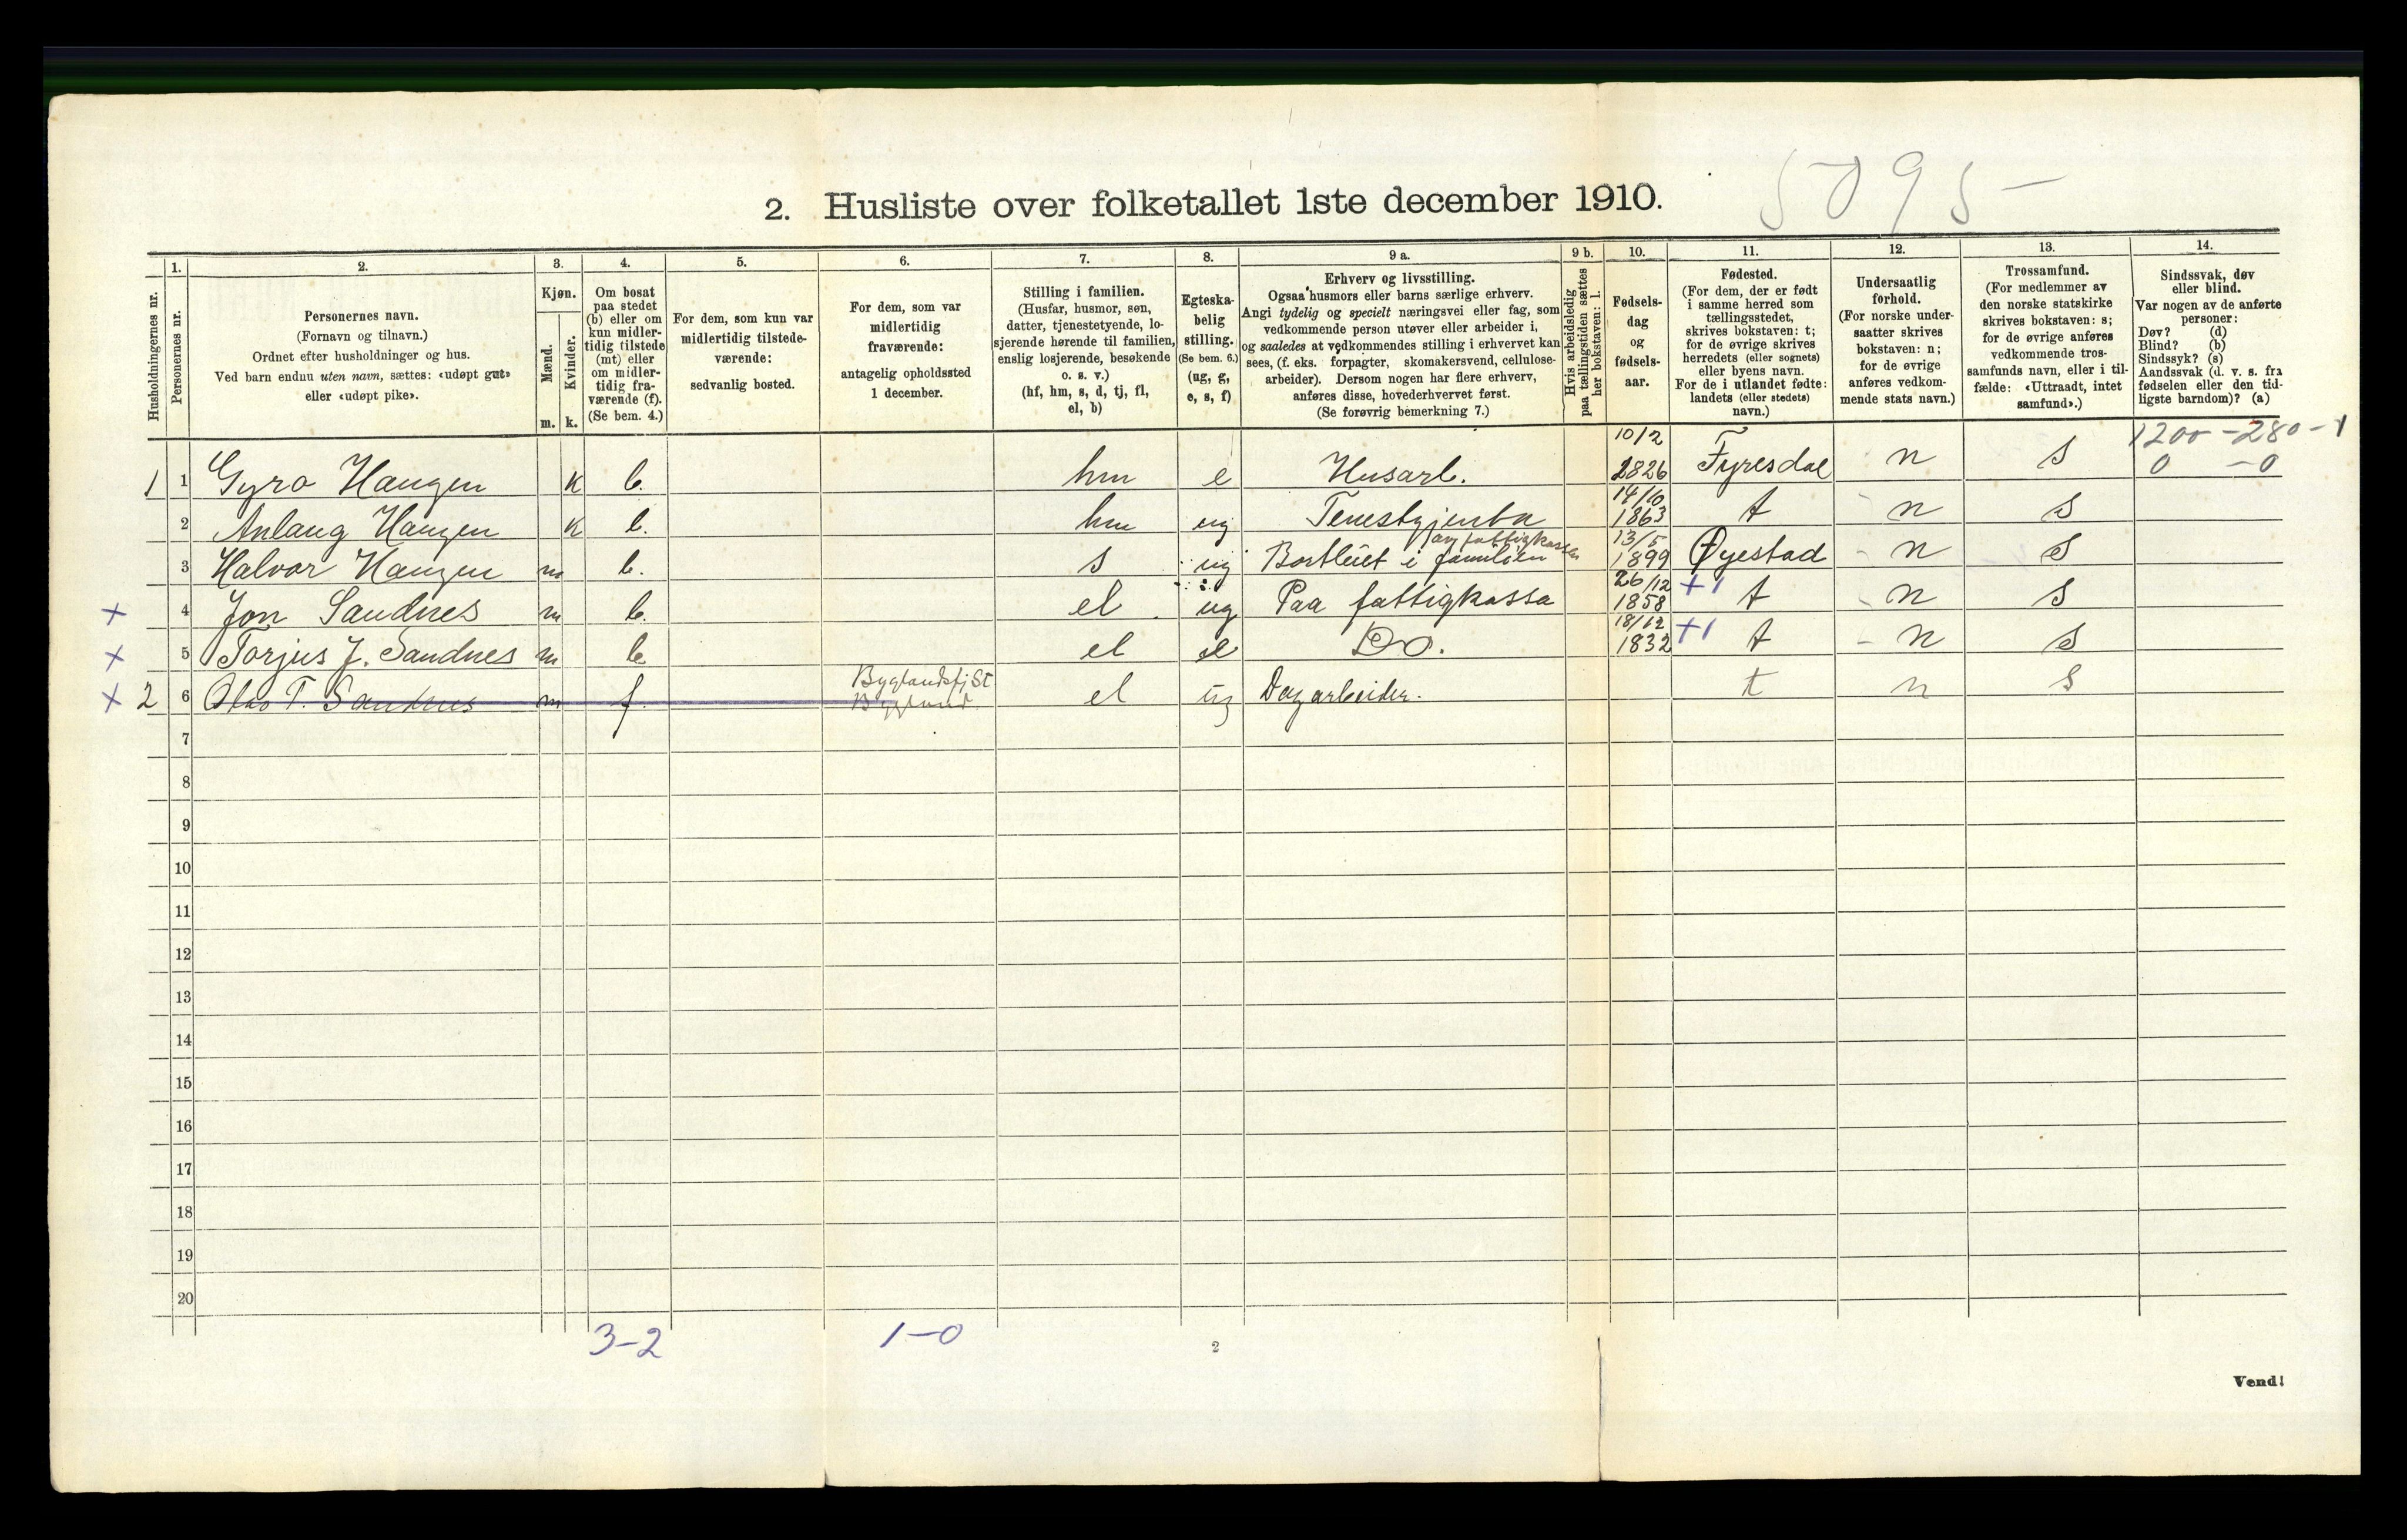 5095-
2. Husliste over folketallet 1ste december 1910.
Husholdningernes nr.
1.
Personernes nr.
2.
Personernes navn.
(Fornavn og tilnavn.)
Ordnet efter husholdninger og hus.
Ved barn endnu uten navn, sættes: «udøpt gut»
eller «udøpt pike».
3.
Kjøn.
Mænd.
Kvinder.
m. k.
4.
Om bosat
paa stedet
(b) eller om
kun midler-
tidig tilstede
(mt) eller
om midler-
tidig fra-
værende (f).
(Se bem. 4.)
5.
For dem, som kun var
midlertidig tilstede-
værende:
sedvanlig bosted.
6.
For dem, som var
midlertidig
fraværende:
antagelig opholdssted
1 december.
7.
Stilling i familien.
(Husfar, husmor, søn,
datter, tjenestetyende, lo-
sjerende hørende til familien,
enslig losjerende, besøkende
o. s. v.)
(hf, hm, s, d, tj, fl,
el, b)
8.
Egteska-
belig
stilling.
(Se bem. 6.)
(ug, g,
e, s, f)
9 a.
Erhverv og livsstilling.
Ogsaa husmors eller barns særlige erhverv.
Angi tydelig og specielt næringsvei eller fag, som
vedkommende person utøver eller arbeider i,
og saaledes at vedkommendes stilling i erhvervet kan
sees, (f. eks. forpagter, skomakersvend, cellulose-
arbeider). Dersom nogen har flere erhverv,
anføres disse, hovederhvervet først.
(Se forøvrig bemerkning 7.)
9 b.
Hvis arbeidsledig
paa tællingstiden sættes
her bokstaven: l.
10.
Fødsels-
dag
og
fødsels-
aar.
11.
Fødested.
(For dem, der er født
i samme herred som
tællingsstedet,
skrives bokstaven: t;
for de øvrige skrives
herredets (eller sognets)
eller byens navn.
For de i utlandet fødte:
landets (eller stedets)
navn.)
12.
Undersaatlig
forhold.
(For norske under-
saatter skrives
bokstaven: n;
for de øvrige
anføres vedkom-
mende stats navn.)
13.
Trossamfund.
(For medlemmer av
den norske statskirke
skrives bokstaven: s;
for de øvrige anføres
vedkommende tros-
samfunds navn, eller i til-
fælde: «Uttraadt, intet
samfund».)
14.
Sindssvak, døv
eller blind.
Var nogen av de anførte
personer:
Døv? (d)
Blind? (b)
Sindssyk? (s)
Aandssvak (d. v. s. fra
fødselen eller den tid-
ligste barndom)? (a)
10/2 1200-280-1
1 1 Gyro Haugen k b. hm e Husarb. 1826 Fyresdal n s 0 -0
14/10
2 Anlaug Haugen k b. hm ug Tenestgjenta 1863 t n s
av fattigkassen 13/5
3 Halvor Haugen m b. s ug Bortleiet i familien 1899 Øyestad - n s
26/12
x 4 Jon Sandnes m b. el ug Paa fattigkassa 1858 +1 t n s
18/12
x 5 Torjus J. Sandnes m b el e Do. 1832 +1 t - n s
Byglandsfj St
x 2 6 Olav T. Sandnes m f. Bygland el ug Dagarbeider. t n s
7
8
9
10
11
12
13
14
15
16
17
18
19
20
3-2 1-0
2
Vend!